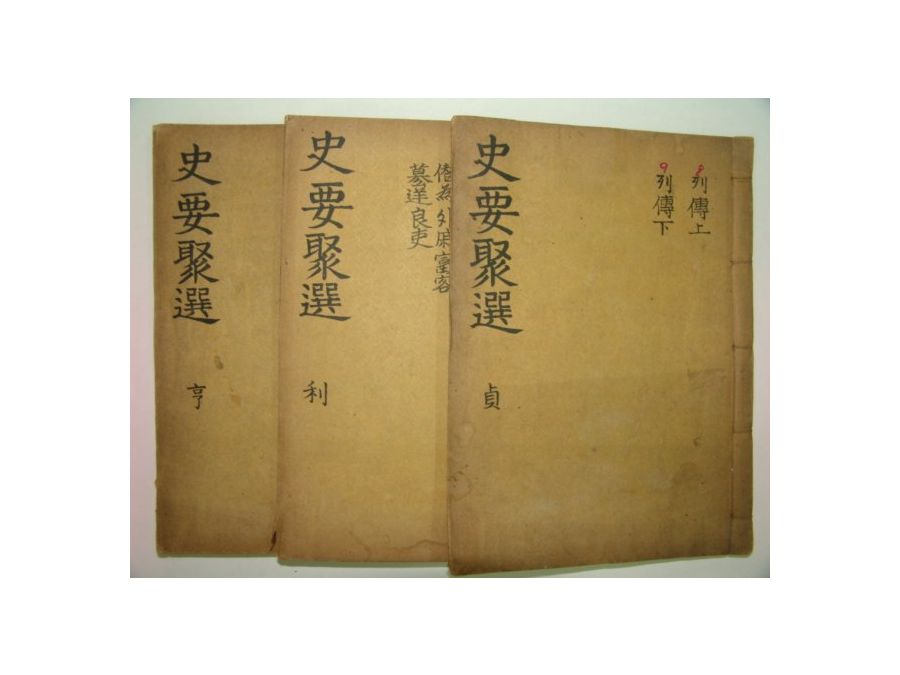 8 列傳上
9 列傳下
史要聚選
貞
外戚
逆良吏
史要聚選
利
史要聚選
亨